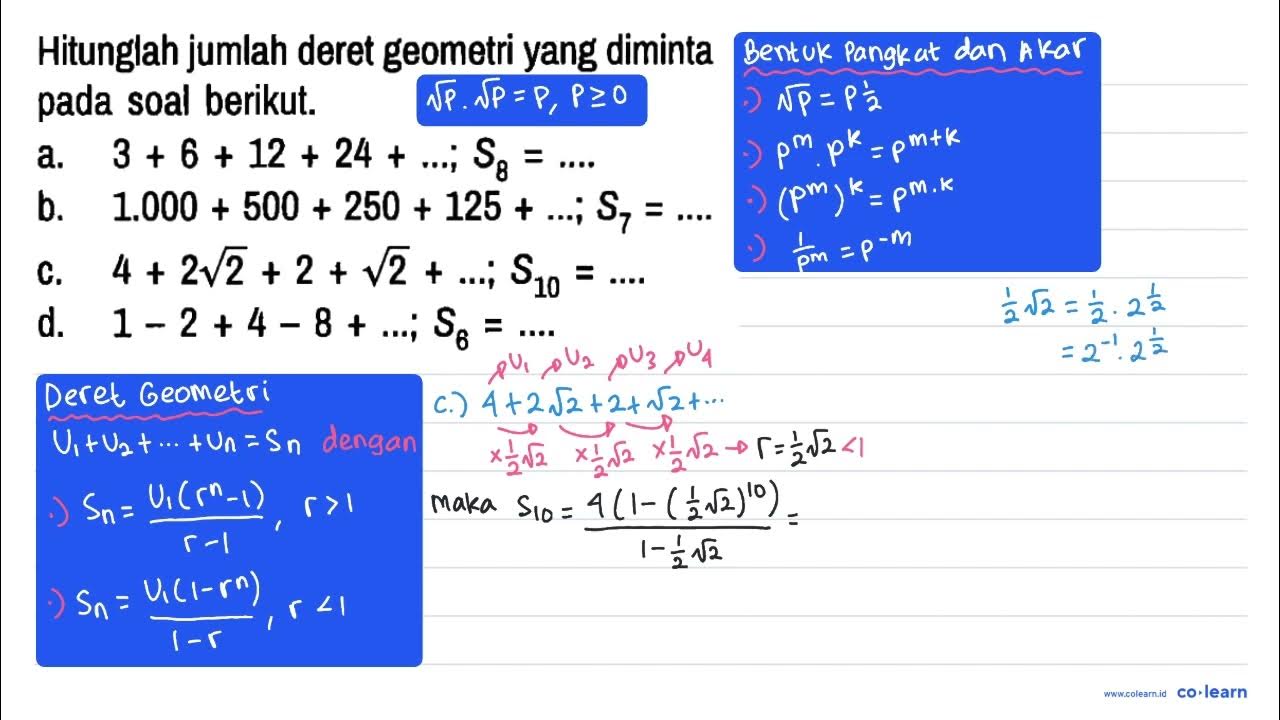 Hitunglah jumlah deret geometri yang diminta
pada soal berikut.
√p . √p = p, p ≥ 0
a. 3 + 6 + 12 + 24 + ...; S₈ = ....
b. 1.000 + 500 + 250 + 125 + ...; S₇ = ....
c. 4 + 2√2 + 2 + √2 + ...; S₁₀ = ....
d. 1 – 2 + 4 – 8 + ...; S₆ = ....
Bentuk Pangkat dan Akar
·) √p = p^½
·) p^m . p^k = p^(m+k)
·) (p^m)^k = p^(m.k)
·) 1/p^m = p^(-m)
½√2 = ½ . 2^½
= 2^(-1) . 2^½
Deret Geometri
U₁ + U₂ + ... + Uₙ = Sₙ dengan
·) Sₙ = U₁(rⁿ – 1) / r – 1 , r > 1
·) Sₙ = U₁(1 – rⁿ) / 1 – r , r < 1
U₁ U₂ U₃ U₄
c.) 4 + 2√2 + 2 + √2 + ...
×½√2 ×½√2 ×½√2 → r = ½√2 < 1
maka S₁₀ = 4(1 – (½√2)¹⁰) / 1 – ½√2 =
www.colearn.id co·learn